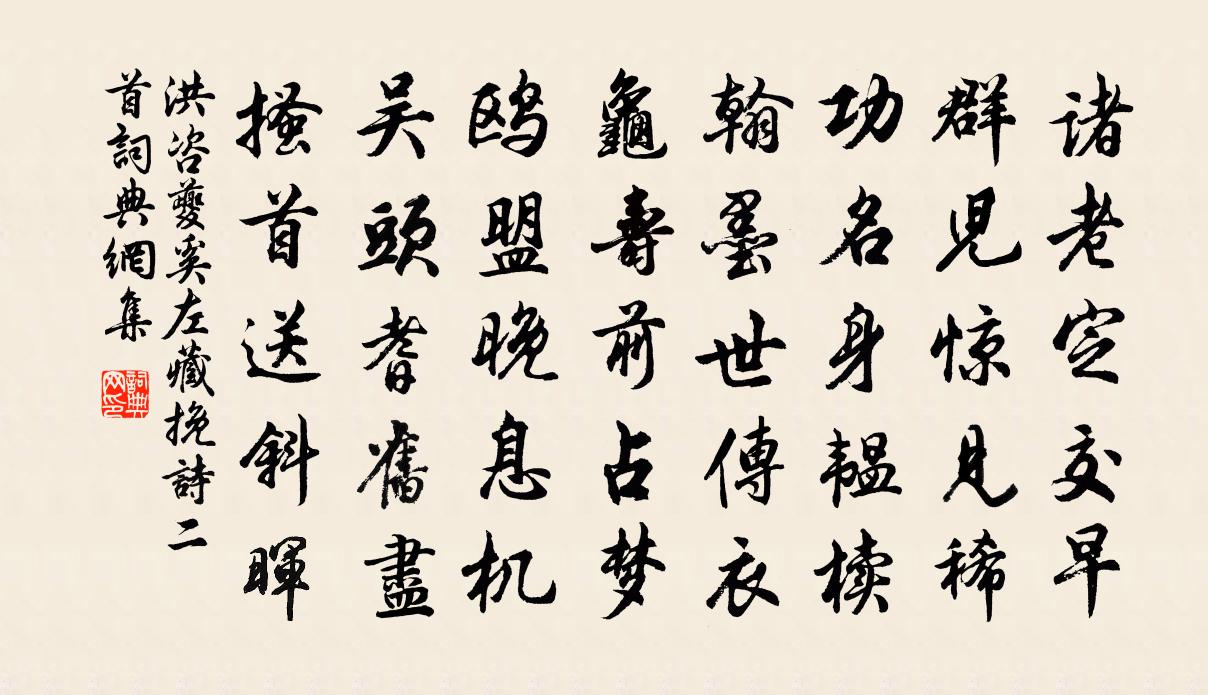 诸老定交早
群児惊見稀
功名身韫椟
翰墨世傳衣
龜壽前占梦
鸥盟晚息机
吴頭耆舊盡
搔首送斜暉
洪咨夔奚左藏挽詩二
首詞典網集
詞典
网印